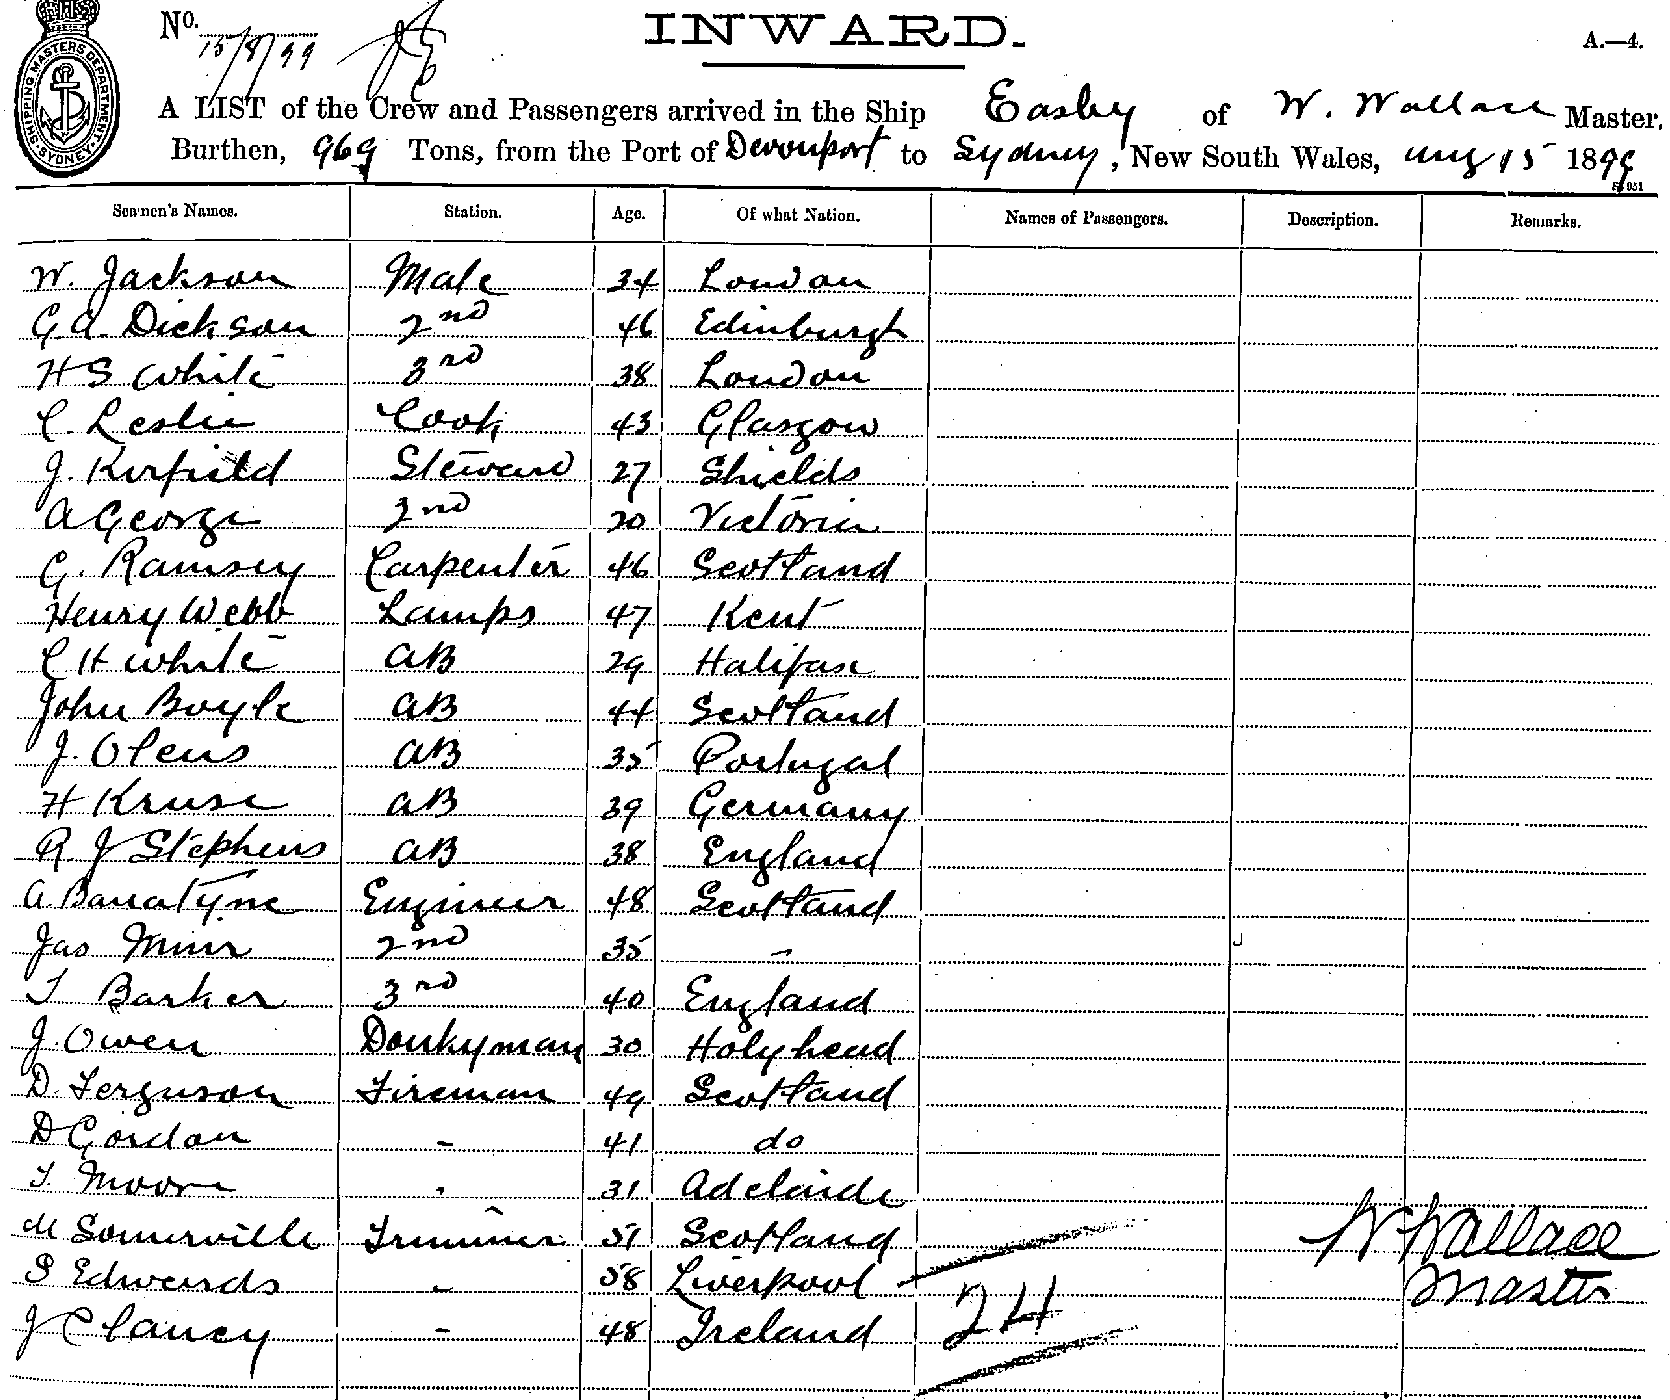 SHIPPING MASTERS DEPARTMENT
SYDNEY
No. 15/8/99
INWARD.
A.—4.
A LIST of the Crew and Passengers arrived in the Ship Easby of W. Wallace Master,
Burthen, 969 Tons, from the Port of Devonport to Sydney, New South Wales, Aug 15 1899
Seamen's Names. Station. Age. Of what Nation. Names of Passengers. Description. Remarks.
W. Jackson Mate 34 London
G.A. Dickson 2nd 46 Edinburgh
H S White 3rd 38 London
C. Leslie Cook 43 Glasgow
J. Kirfield Steward 27 Shields
A George 2nd 20 Victoria
G. Ramsey Carpenter 46 Scotland
Henry Webb Lamps 47 Kent
C H White AB 29 Halifax
John Boyle AB 44 Scotland
J. Olens AB 35 Portugal
H Kruse AB 39 Germany
R J Stephens AB 38 England
A Banatyne Engineer 48 Scotland
Jas Muir 2nd 35 -
T Barker 3rd 40 England
J. Owen Donkyman 30 Holyhead
D. Ferguson Fireman 49 Scotland
D Gordon - 41 do
T Moore - 31 Adelaide
M Somerville Trimmer 51 Scotland W Wallace
S Edwards - 58 Liverpool Master
J Clancy - 48 Ireland 24